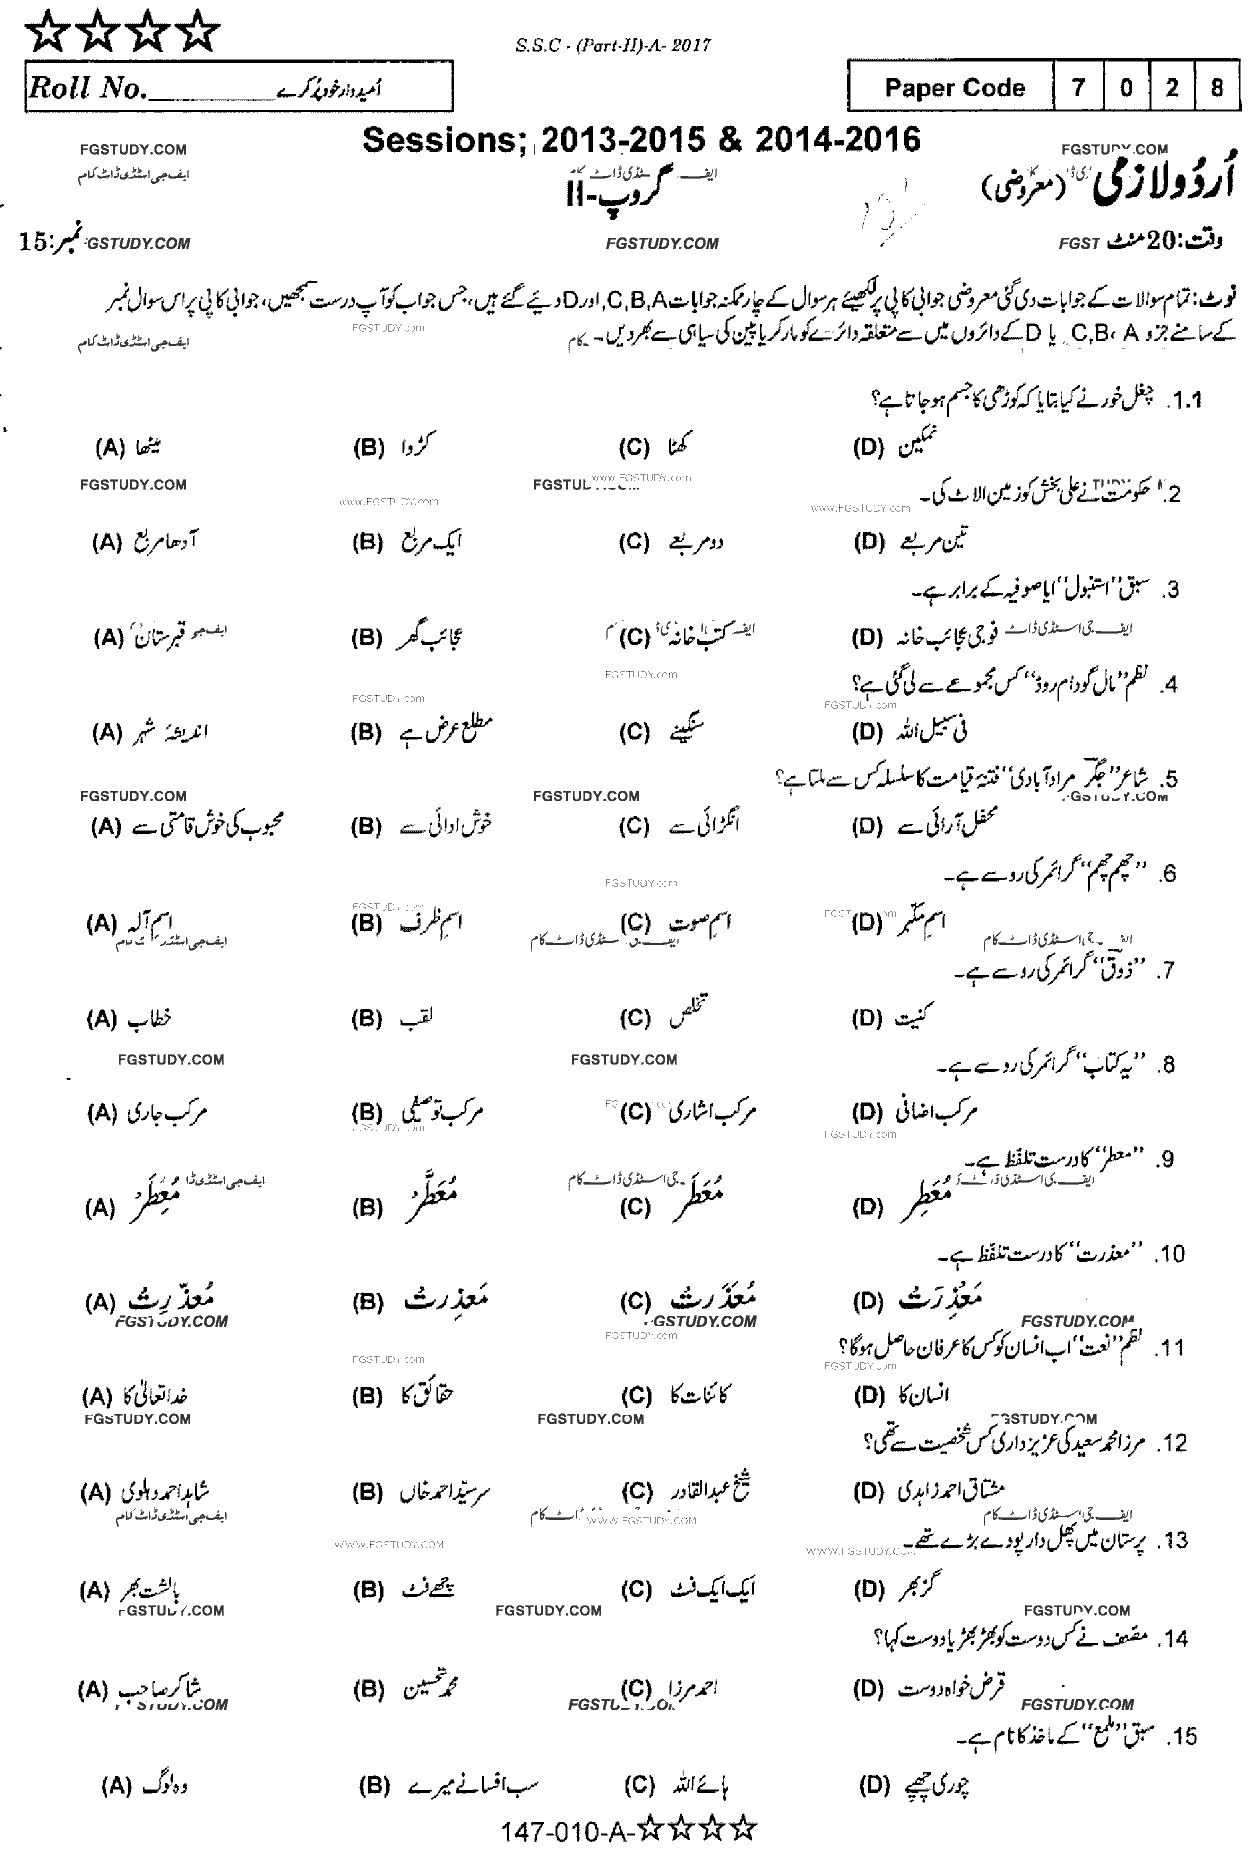 S.S.C - (Part-II)-A- 2017
Roll No.________ اُمیدوار خود پُر کرے
Paper Code 7 0 2 8
Sessions; 2013-2015 & 2014-2016
FGSTUDY.COM
ایف جی اسٹڈی ڈاٹ کام
اُردو لازمی (معروضی)
گروپ-II
وقت:20 منٹ
FGSTUDY.COM
نمبر:15
نوٹ: تمام سوالات کے جوابات دی گئی معروضی جوابی کاپی پر لکھیئے ہر سوال کے چار ممکنہ جوابات C,B,A, اور D دیئے گئے ہیں، جس جواب کو آپ درست سمجھیں، جوابی کاپی پر اس سوال نمبر
کے سامنے جزو A ،C,B یا D کے دائروں میں سے متعلقہ دائرے کو مارکر یا پین کی سیاہی سے بھر دیں۔
1.1. چغل خور نے کیا بتایا کہ کوڑھی کا جسم ہو جاتا ہے؟
(A) میٹھا (B) کڑوا (C) کھٹا (D) نمکین
2. حکومت نے علی بخش کو زمین الاٹ کی۔
(A) آدھا مربع (B) ایک مربع (C) دو مربعے (D) تین مربعے
3. سبق ''استنبول'' ایا صوفیہ کے برابر ہے۔
(A) قبرستان (B) عجائب گھر (C) کتب خانہ (D) فوجی عجائب خانہ
4. نظم ''مال گودام روڈ'' کس مجموعے سے لی گئی ہے؟
(A) اندیشۂ شہر (B) مطلع عرض ہے (C) سنگینے (D) فی سبیل اللہ
5. شاعر ''جگر مراد آبادی'' فتنۂ قیامت کا سلسلہ کس سے ملتا ہے؟
(A) محبوب کی خوش قامتی سے (B) خوش ادائی سے (C) انگڑائی سے (D) محفل آرائی سے
6. ''چھم چھم'' گرائمر کی رو سے ہے۔
(A) اسم آلہ (B) اسمِ ظرف (C) اسمِ صوت (D) اسمِ مکبر
7. ''ذوق'' گرائمر کی رو سے ہے۔
(A) خطاب (B) لقب (C) تخلص (D) کنیت
8. ''یہ کتاب'' گرائمر کی رو سے ہے۔
(A) مرکب جاری (B) مرکب توصیفی (C) مرکب اشاری (D) مرکب اضافی
9. ''معطر'' کا درست تلفّظ ہے۔
(A) (B) مُعَطَّر (C) (D)
10. ''معذرت'' کا درست تلفّظ ہے۔
(A) (B) (C) (D)
11. نظم ''نعت'' اب انسان کو کس کا عرفان حاصل ہوگا؟
(A) خدا تعالیٰ کا (B) حقائق کا (C) کائنات کا (D) انسان کا
12. مرزا محمد سعید کی عزیز داری کس شخصیت سے تھی؟
(A) شاہد احمد دہلوی (B) سر سیّد احمد خاں (C) شیخ عبدالقادر (D) مشتاق احمد زاہدی
13. پرستان میں پھل دار پودے بڑے تھے۔
(A) بالشت بھر (B) چھے فٹ (C) ایک ایک فٹ (D) گز بھر
14. مصنف نے کس دوست کو بھڑ بھڑیا دوست کہا؟
(A) شاکر صاحب (B) محمد تحسین (C) احمد مرزا (D) قرض خواہ دوست
15. سبق ''ملمع'' کے ماخذ کا نام ہے۔
(A) وہ لوگ (B) سب افسانے میرے (C) ہائے اللہ (D) چوری چھپے
147-010-A-☆☆☆☆